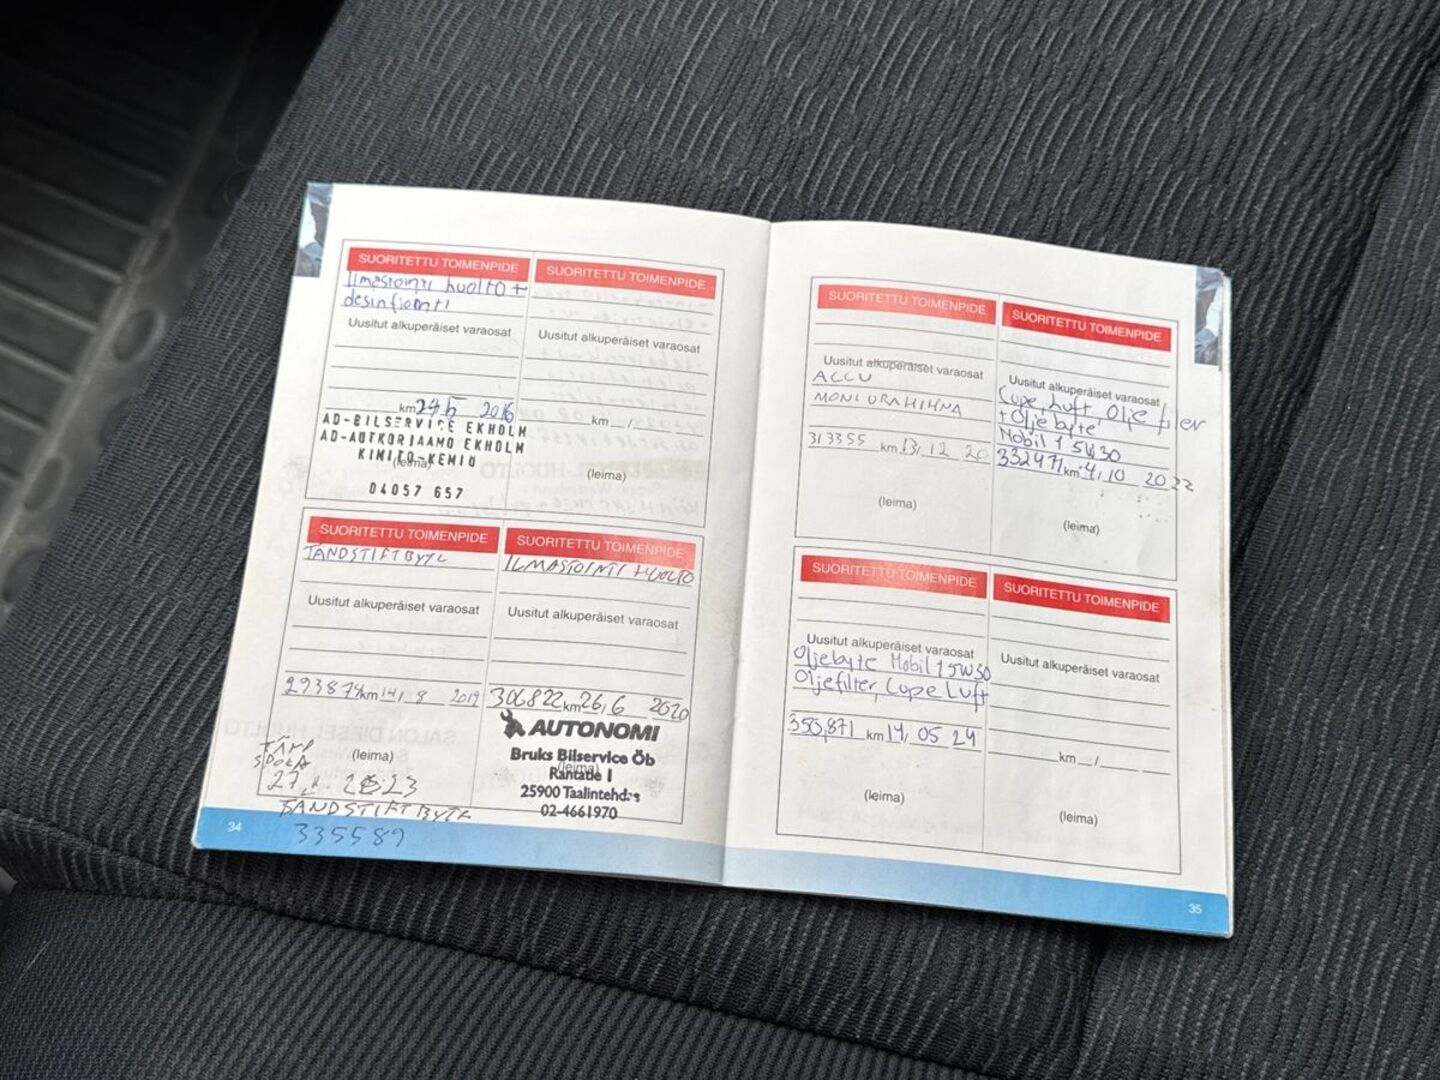 SUORITETTU TOIMENPIDE
Ilmastointi huolto +
desinfiointi
Uusitut alkuperäiset varaosat
km 24/5 2016
AD-BILSERVICE EKHOLM
AD-AUTKORJAAMO EKHOLM
KIMITO-KEMIÖ
(leima)
04057 657
SUORITETTU TOIMENPIDE
Uusitut alkuperäiset varaosat
km /
(leima)
SUORITETTU TOIMENPIDE
TANDSTIFTBYTE
Uusitut alkuperäiset varaosat
293874 km 14/ 8 2019
(leima)
27 2023
TANDSTIFTBYTE
335589
34
SUORITETTU TOIMENPIDE
ILMASTOINTI HUOLTO
Uusitut alkuperäiset varaosat
306822 km 26, 6 2020
AUTONOMI
Bruks Bilservice Öb
(leima)
Rantatie 1
25900 Taalintehdas
02-4661970
SUORITETTU TOIMENPIDE
Uusitut alkuperäiset varaosat
ACCU
MONIURAHIHNA
313355 km 13, 12 20
(leima)
SUORITETTU TOIMENPIDE
Uusitut alkuperäiset varaosat
Cupe, Luft, Olje filter
+ Oljebyte
Mobil 1 5W30
332471 km 4, 10 2022
(leima)
SUORITETTU TOIMENPIDE
Uusitut alkuperäiset varaosat
Oljebyte Mobil 1 5W30
Oljefilter, Cupe Luft
350,871 km 14/ 05 24
(leima)
SUORITETTU TOIMENPIDE
Uusitut alkuperäiset varaosat
km /
(leima)
35